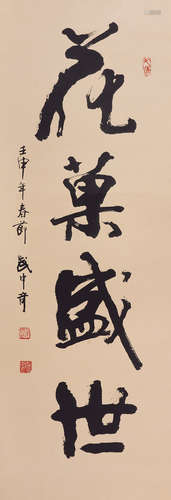 花菓盛世
壬申年春節 武中奇